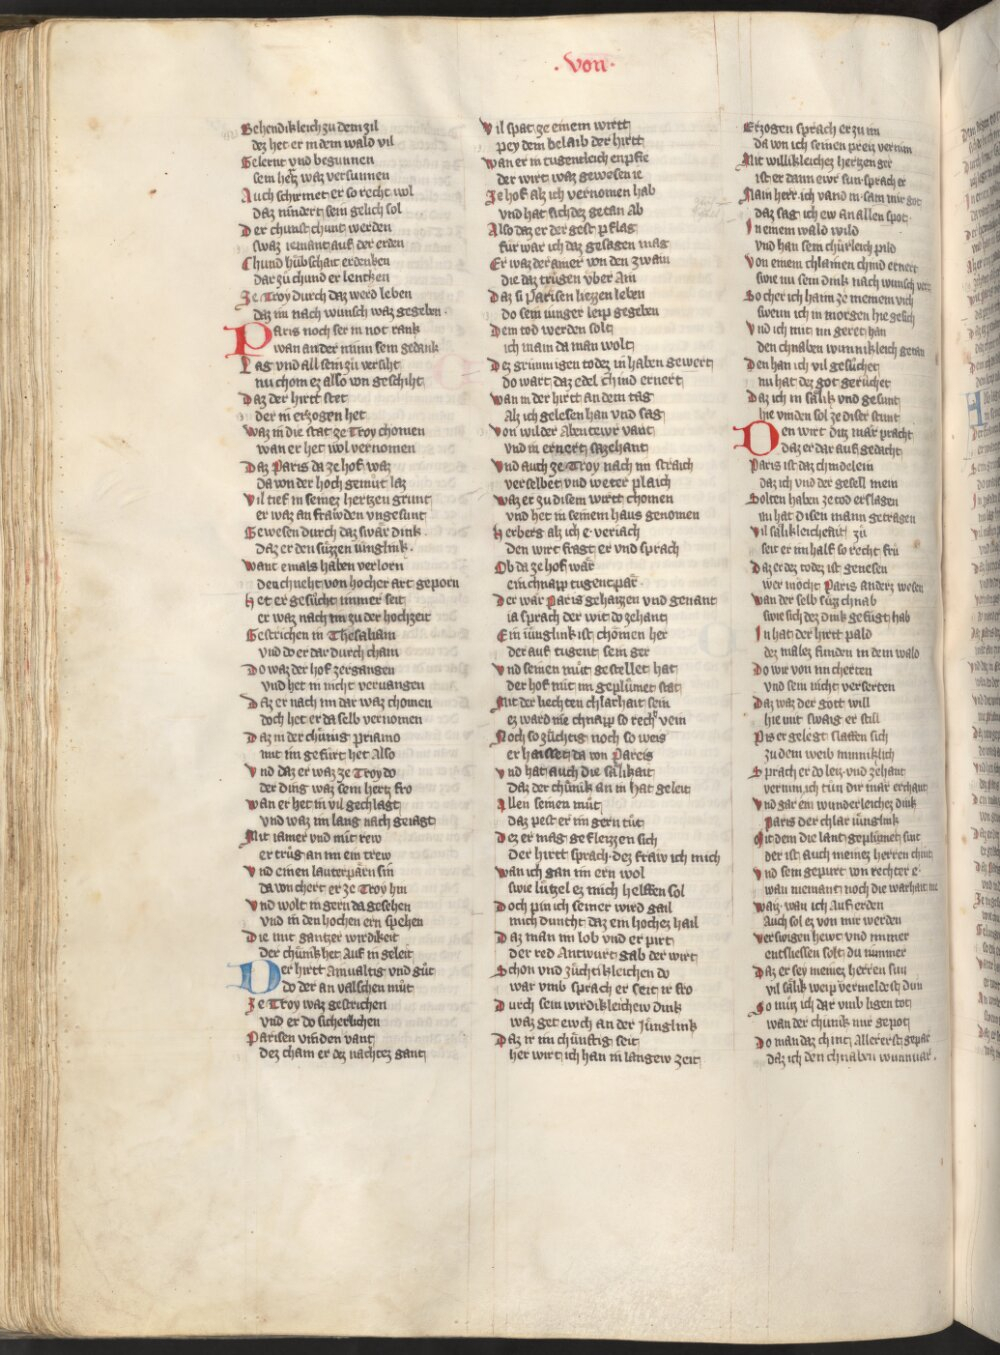 · von ·
Behendikleich zu dem zil
dez het er in dem wald vil
Gelernt vnd begunnen
sein hertz waz versunnen
Auch schirmet er so recht wol
daz nindert sein gelich sol
Der chunst chunt werden
swaz iemant auf der erden
Chund hübschait erdenken
dar zü chund er lencken
Ze Troy durch daz werd leben
daz im nach wunsch waz gegeben ·
Paris noch ser in not rank
wan an der minn sein gedank
Lag vnd all sein zü versiht
nu chom ez also von geschiht
Daz der hirtt stet
der in erzogen het
Waz in die stat ze Troy chomen
wan er het wol vernomen
Daz Paris da ze hof waz
da von der hoch gemüt laz
Vil tief in seinez hertzen grunt
er waz an frawden vngesunt
Gewesen durch daz swär dink ·
daz er den süzzen iünglink ·
Want emals haben verlorn
den chneht von hocher art geporn
Het er gesücht immer seit
er waz nach im zu der hochzeit
Gestrichen in Thesaliam
vnd do er dar durch cham
Do waz der hof zergangen
vnd het in nicht vervangen
Daz er nach im dar waz chomen
doch het er da selb vernomen
Daz in der chünig priamo
mit im gefürt het Also
Vnd daz er waz ze Troy do
der ding waz sein hertz fro
Wan er het in vil gechlagt
vnd waz im lang nach geiagt
Mit iamer vnd mit rew
er trüg an im ein trew
Vnd einen lauterparn sin
da von chert er ze Troy hin
Vnd wolt in gern da gesehen
vnd in den hochen ern spehen
Die mit gantzer wirdikeit
der chünik het Auf in geleit
Der hirtt Ainualtig vnd güt
do der an valschen müt
Ze Troy waz gestrichen
vnd er do sicherlichen
Parisen vinden vant
dez cham er dez nachtez gant
Vil spat ze einem wirtt
pey dem belaib der hirtt
Wan er in tugentleich enpfie
der wirt waz gewesen ie
Ze hof alz ich vernomen hab
vnd hat sich dez getan Ab
Also daz er der gest pflag
für war ich daz gesagen mag
Er waz der ainer von den zwain
die daz trügen vber Ain
Daz si Parisen liezzen leben
do sein iunger leip gegeben
Dem tod werden solt
ich main da man wolt
Dez grimmigen todez in haben gewert
do wart daz edel chind ernert
Wan in der hirtt an dem tag
Alz ich gelesen han vnd sag
Von wilder Abentewr vant
vnd in ernert sazehant
Vnd auch ze Troy nach im straich
verselbet vnd weter plaich
Waz er zu disem wirtt chomen
vnd het in seinem haus genomen
Herberg alz ich e veriach
den wirt fragt er vnd sprach
Ob da ze hof wär
ein chnapp tugentpär ·
Der war Paris gehaizzen vnd genant
ia sprach der wit do zehant
Ein iünglink ist chomen her
der auf tugent sein ger
Vnd seinen müt gestellet hat
der hof mit im geplümet stat
Mit der liechten chlarhait sein
ez ward nie chnapp so rech vein
Noch so züchtig noch so weis
er haisset da von Pareis
Vnd hat auch die sälikait
daz der chünik an in hat geleit
Allen seinen müt
daz pest er im gern tüt
Dez er mag gefleizzen sich
Der hirtt sprach · dez fraw ich mich
Wan ich gan im ern wol
swie lützel ez mich helffen sol
Doch pin ich seiner wird gail
mich dunckt daz ein hochez hail
Daz man im lob vnd er pirt
der red Antwurt gab der wirt
Schon vnd züchtikleichen do
war vmb sprach er seit ir fro
Durch sein wirdikleichew dink
waz get ewch an der Jünglink
Daz ir im chünftig seit
her wirt ich han in langew zeit
Erzogen sprach er zu im
da von ich seinen preiz vernim
Mit willikleichez hertzen ger
ist er dann ewr sun · sprach er
Nain herr ich vand in · sam mir got
daz sag ich ew an allen spot ·
In einem wald wild
vnd han sein chürleich pild
Von einem chlainen chind ernert
swie im sein dink nach wunsch vert
So cher ich haim ze meinem vich
swenn ich in morgen hie gesich
Vnd ich mit im geret han
den chnaben wunnikleich getan
Den han ich vil gesüchet
nu hat dez got gerüchet
Daz ich in sälik vnd gesunt
hie vinden sol ze diser stunt
Den wirt ditz mär pracht
daz er dar auf gedacht
Paris ist daz chindelein
daz ich vnd der gesell mein
Solten haben ze tod erslagen
nu hat disen mann getragen
Vil sälikleicheft zü
seit er im half so recht frü
Daz er dez todez ist genesen
wer möcht Paris anderz wesen
Wan der selb süzz chnab
swie sich dez dink gefügt hab
In hat der hirtt pald
dez malez funden in dem wald
Do wir von im cherten
vnd sein nicht verserten
Daz waz der gott will
hie mit swaig er still
Pis er gelegt slaffen sich
zu dem weib minniklich
Sprach er do leiz · vnd zehant
vernim ich tün dir mär erchant
Vnd gar ein wunderleichez dink
Paris der chlar iünglink
Mit dem die lant geplümet sint
der ist auch meinez herren chint
Vnd sein gepurt von rechter e ·
wan niemant noch die warhait me
Waiz · wan ich Auf erden
Auch sol ez von mir werden
Verswigen hewt vnd immer
entsliessen solt du nimmer
Daz er sey meinez herren sun
vil sälik weip vermeldest dun
So müz ich dar vmb ligen tot
wan der chünik mir gepot
Do man daz chint Allererst gepar
daz ich den chnaben wunnuar ·